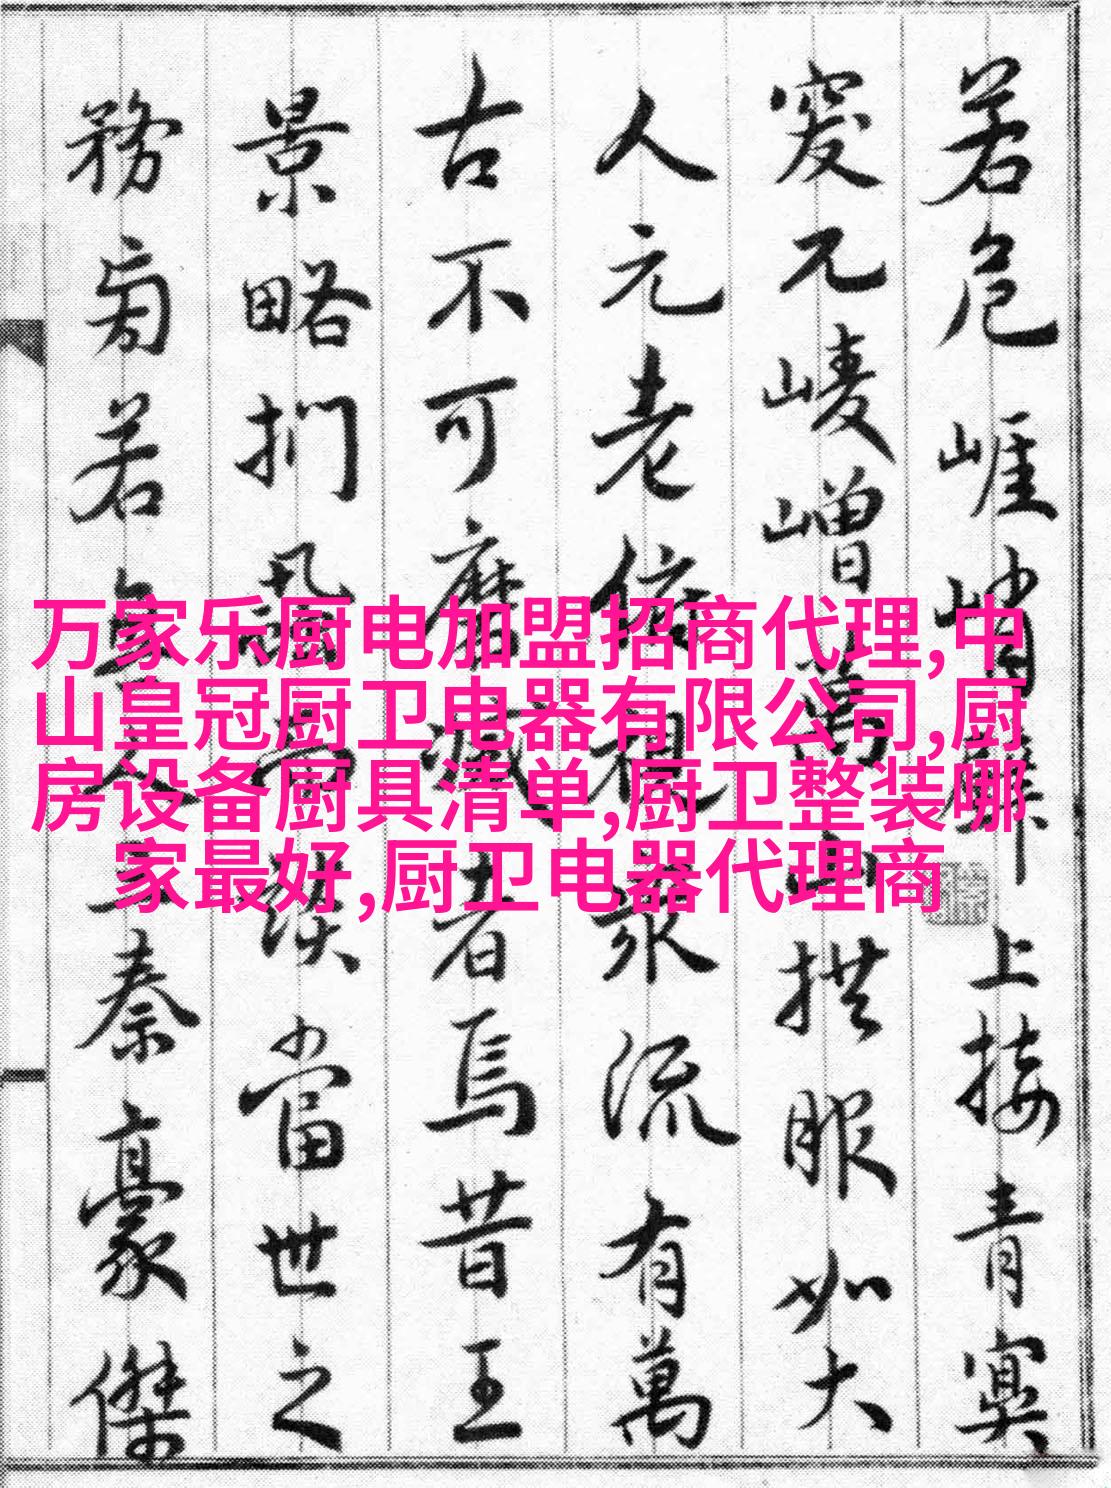 若危崖峭壁上接青冥
窔兀崚嶒萬山拱服如大
人元老俯視眾流有萬
古不可磨滅者焉昔王
景略捫蝨而談當世之
務旁若無人秦豪傑
万家乐厨电加盟招商代理,中
山皇冠厨卫电器有限公司,厨
房设备厨具清单,厨卫整装哪
家最好,厨卫电器代理商